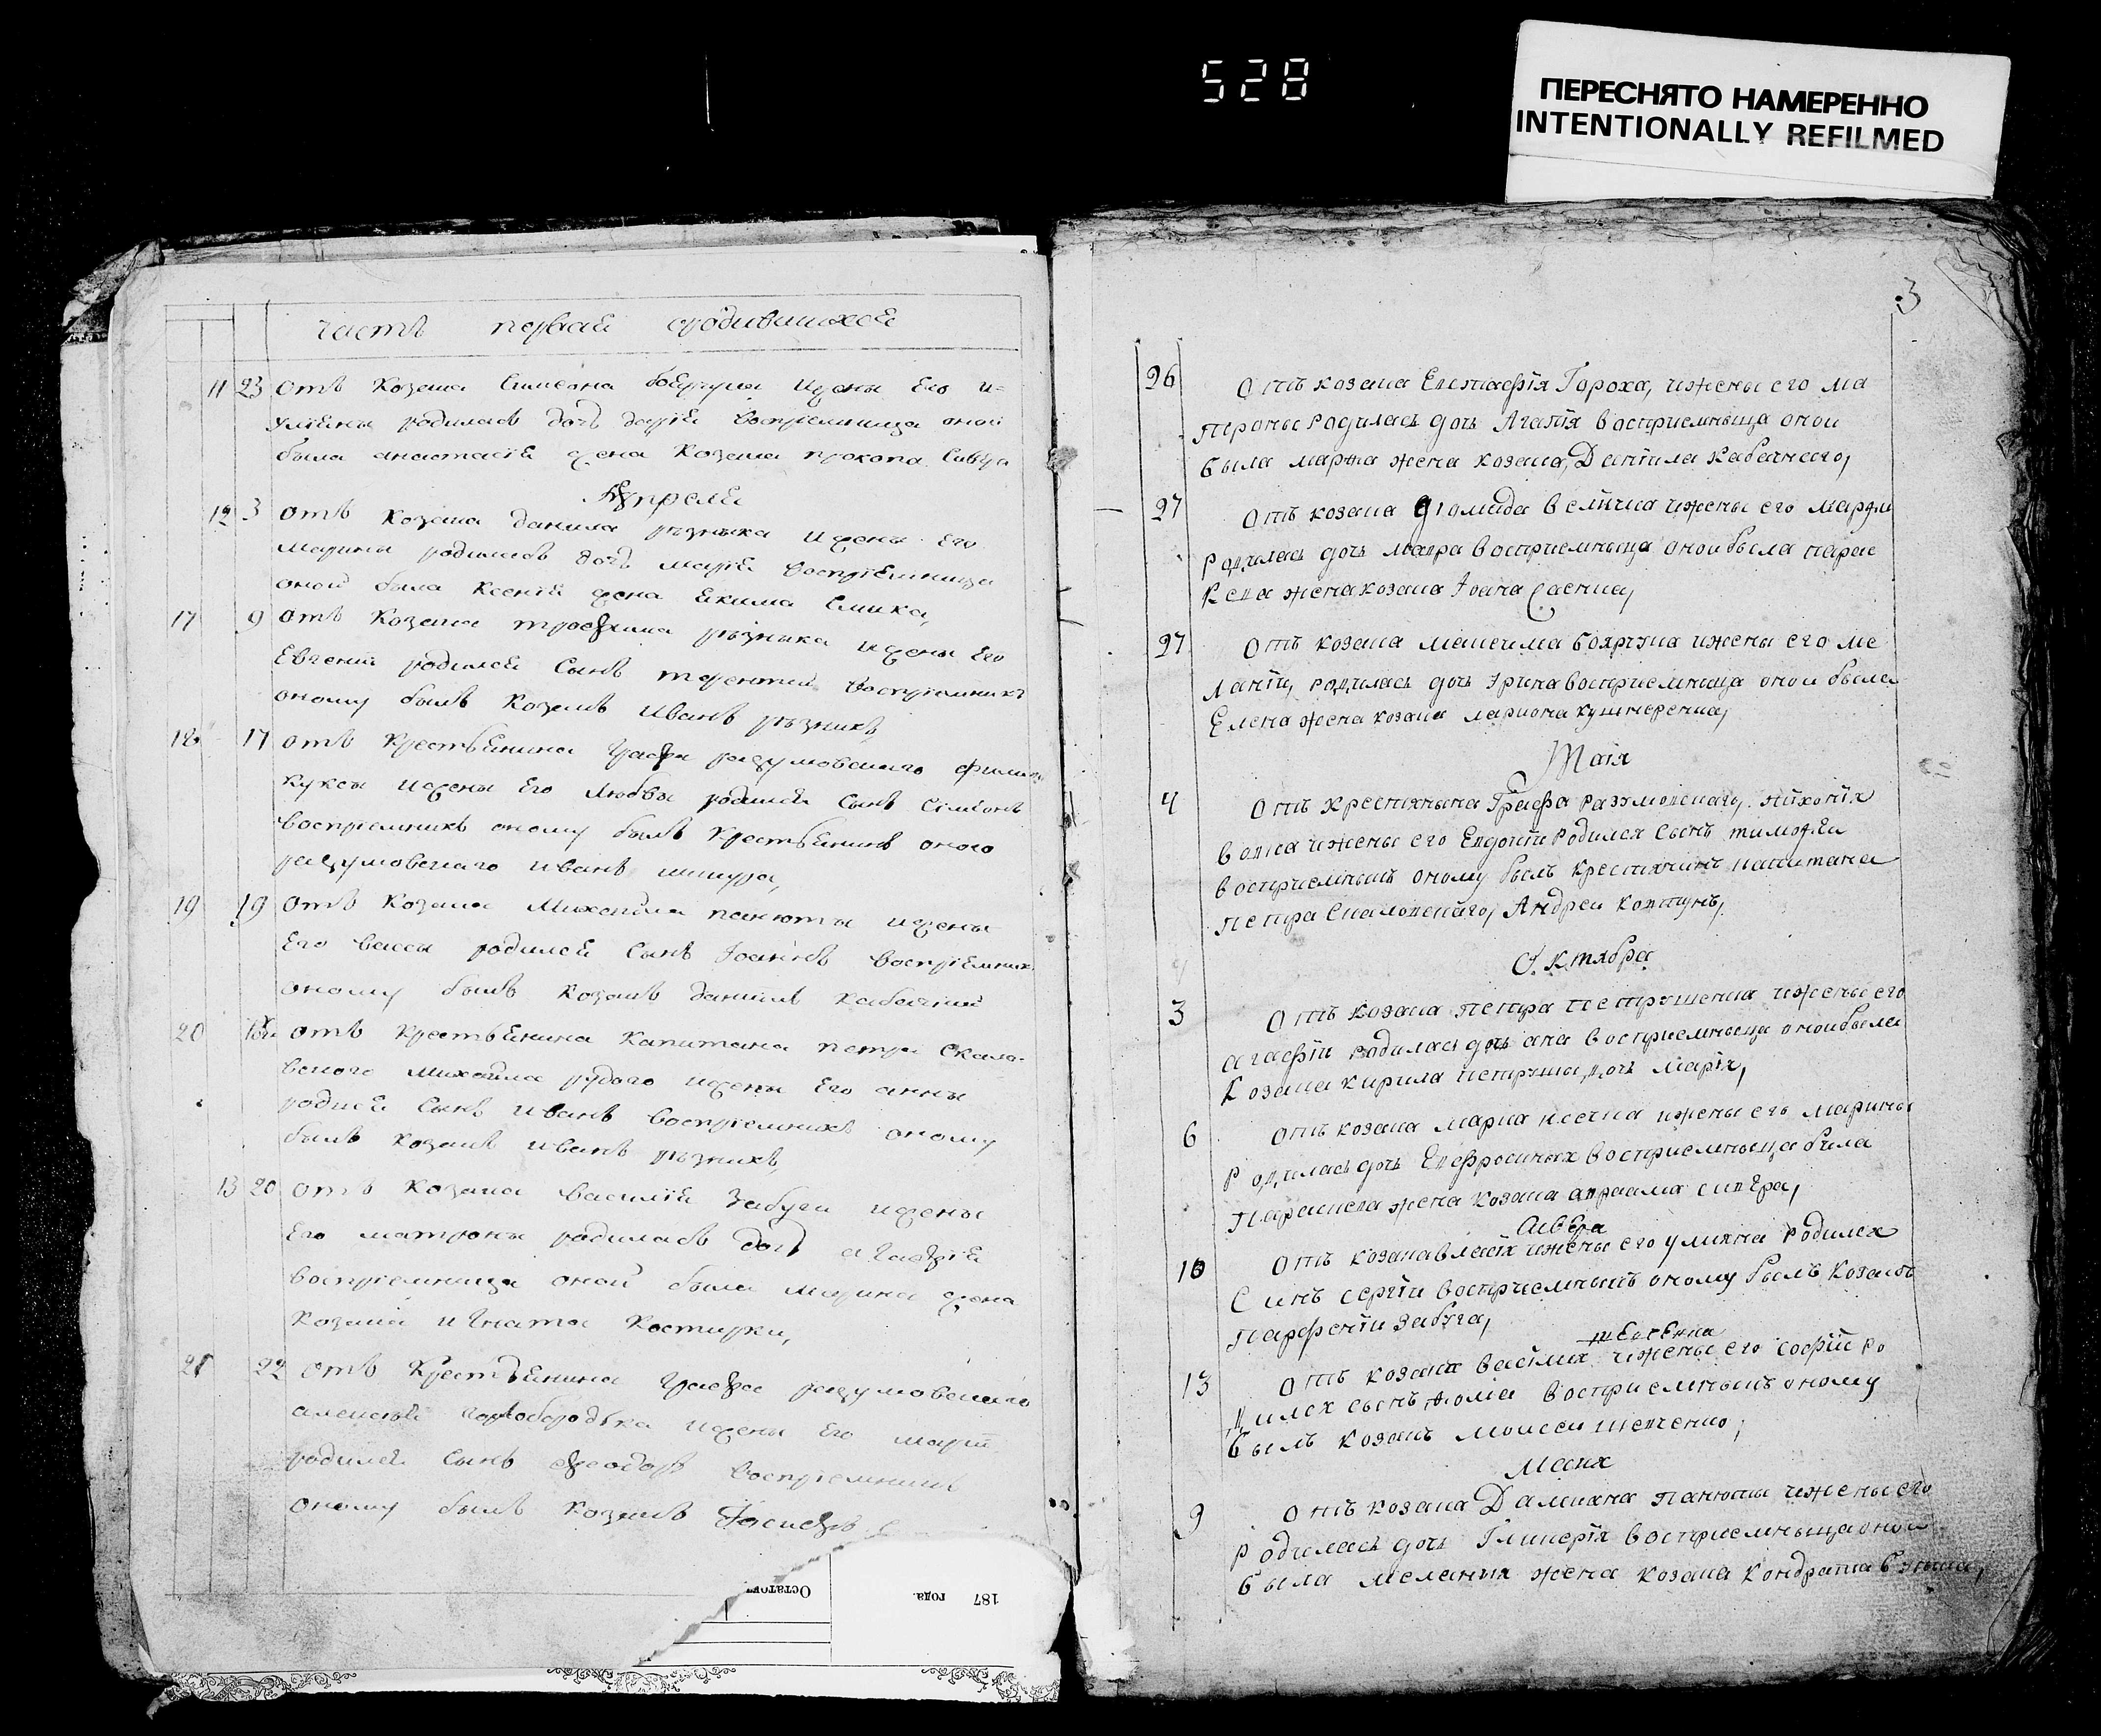 528
ПЕРЕСНЯТО НАМЕРЕННО
INTENTIONALLY REFILMED
часть первая ородившихся
11 23 отъ козака Симеона боярчука и жены его и-
улiяны родилась дочь дарiя воспрiемница оной
была анастасiя жена козака прокопа Сивера
Априля
12 3 отъ козака данила рѣзныка и жены его
марины родилась дочь марiя воспрiемница
оной была ксенiя жена екима
17 9 отъ козака трофима рѣзныка и жены его
Евгенiи родился сынъ терентий воспрiемникъ
оному былъ козакъ иванъ рѣзникъ,
18 17 отъ крестьянина графа разумовскаго
куксы и жены его любвы родился сынъ Сiмеонъ
воспрiемникъ оному былъ крестьянинъ оного
разумовскаго иванъ
19 19 отъ козака михаила панюты и жены
его вассы родился сынъ Iоаннъ воспрiемник
оному былъ козакъ данiилъ кабачний
20 отъ крестьянина капитана петра Скала-
вского михаила рудого и жены его анны
родился сынъ иванъ воспрiемникъ оному
былъ козакъ иванъ рѣзникъ,
13 20 отъ козака василiя Забуги и жены
его матроны родилась дочь агафiя
воспрiемница оной была марина жена
козака игната костирки,
21 22 отъ крестьянина графа разумовскаго
алексея и жены его марiи
родился сынъ феодоръ воспрiемникъ
оному былъ козакъ
Остатокъ
187 года.
3
26 Отъ козака Евстафiя Гороха, ижены его ма
троны родилась дочь Агапiя восприемныца оной
была марфа жена козака, Данiила Кабачнаго,
27 Отъ козака дiомида величка ижены его марфи
родилась дочь мавра восприемныца оной была парас
кева жена козака Iоана Саенка,
27 Отъ козака максима боярчука ижены его ме
ланiи, родилась дочь Iрина восприемныца оной была
Елена жена козака лариона кушнеренка,
Маiя
4 Отъ крестянына Графа разумовскаго, никонiя
вовка ижены его Евдокiи родился сынъ тимофеи
восприемныкъ оному былъ крестянинъ капитана
петра Скаловскаго, Андреи Ковтунъ,
Октября
3 Отъ козака петра петрушенка ижены его
агафiи родилась дочь ана восприемныца оной была
козака кирила петруша, дочь Марiя,
6 Отъ козака марка ижены его марины
родилась дочь Ефросиныя восприемныща была
параскева жена козака авраама сивера,
сивера
10 Отъ козака власiя ижены его улияна родился
Синъ сергiи восприемныкъ оному былъ козакъ
парфенiи Забуга,
шевченка
13 Отъ козака василия ижены его софiи ро
дился сынъ фома восприемныкъ оному
былъ козакъ моисеи шевченко,
9 Отъ козака Дамиана панюты ижены его
родилась дочь Гликерiя восприемныца оной
была мелания жена козака кондрата